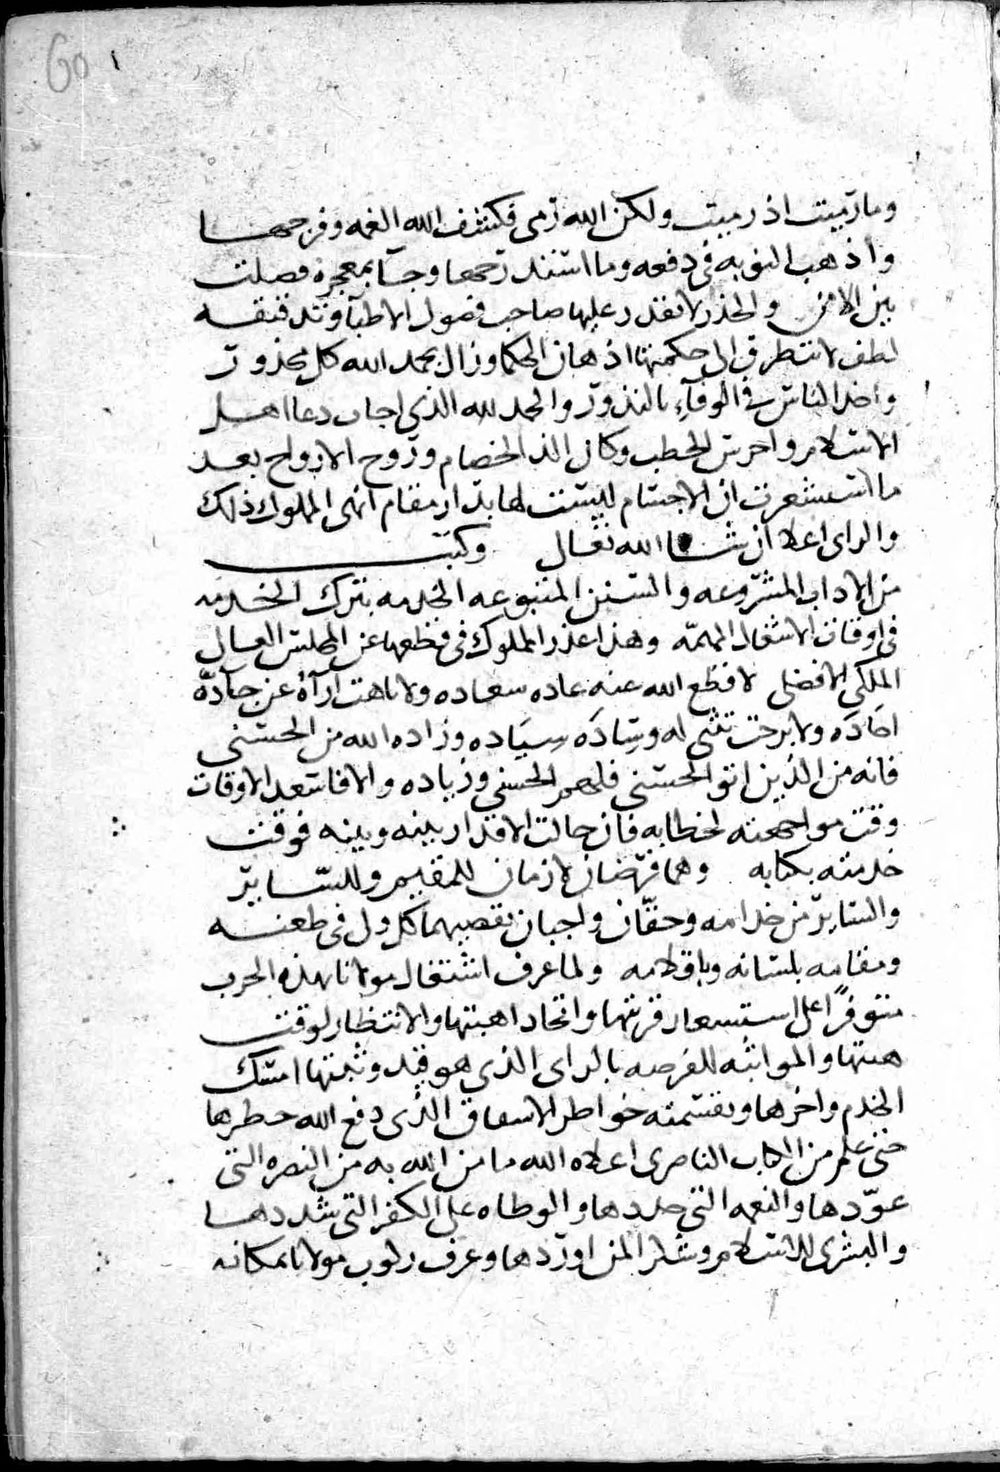 60
وما رميت اذ رميت ولكن الله رمى فكشف الله الغمه وفرجها
واذهب النوبه في دفعه وما استند زحمها وجا بمعجزة فصلت
بين الامن والحذر لا يقدر عليها صاحب فصول الاطبا وتدقيقه
لطف لا تتطرق الى حكمتها اذهان الحكما وزال بحمد الله كل محذور
واخذ الناس في الوفاء بالنذور والحمد لله الذي اجاب دعا اهل
الاسلام واخرس الخطب وكان الد الخصام وروح الارواح بعد
ما استشعرت ان الاجسام ليست لها بدار مقام انهى المملوك ذلك
والراى اعلا ان شا الله تعالى وكتب
من الاداب المشروعه والسنن المتبوعه الخدمه بترك الخدمه
في اوقات الاشغال المهمه وهذا عذر المملوك في قطعها عن المجلس العالى
الملكي الافضلى لا قطع الله عنه عاده سعاده ولا تاهت اراه عن جادة
اجاده ولا برحت تثنى له وساده سياده وزاده الله من الحسنى
فانه من الذين اتو الحسنى فلهم الحسنى وزياده والا فاسعد الاوقات
وقت مواجهته لخطابه فان حالت الاقدار بينه وبينه فوقت
خدمته بكتابه وهما فرضان لازمان للمقيم وللساير
والساير من خدامه وحقان واجبان يقضيهما كل ولى في ظعنه
ومقامه بلسانه وباقلامه ولما عرف اشتغال مولانا بهذه الحرب
متوفرا على استسعار قريتها واتخاد اهبتها والانتظار لوقت
هبتها والمواثبه للفرصه بالراى الذي هو قيد وثبتها امسك
الخدم واخرها وتقسمته خواطر الاسفاق الذى دفع الله خطرها
حتى علم من الكتاب الناصرى اعلاه الله ما من الله به من النصره التى
عودها والنعمه التي جددها والوطاه على الكفر التى شددها
والبشرى للاسلام وشكر المنن اوردها وعرف ركوب مولانا بمكانه